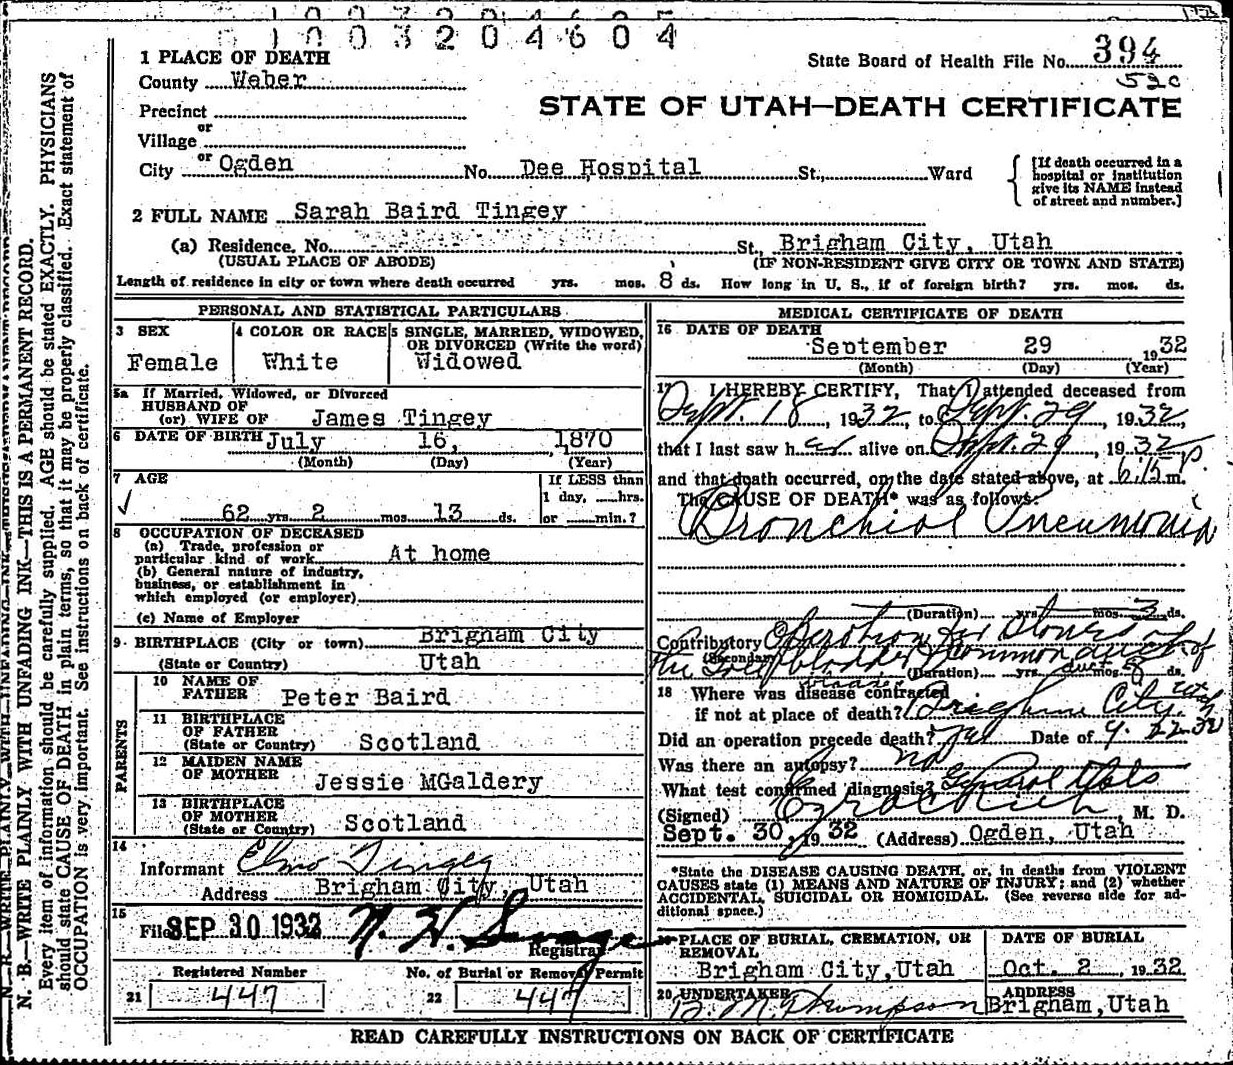 1003204604
State Board of Health File No. 394
52c
STATE OF UTAH—DEATH CERTIFICATE
1 PLACE OF DEATH
County Weber
Precinct
or
Village
or
City Ogden No. Dee Hospital St., Ward
[If death occurred in a hospital or institution give its NAME instead of street and number.]
2 FULL NAME Sarah Baird Tingey
(a) Residence. No. St., Brigham City, Utah
(USUAL PLACE OF ABODE) (IF NON-RESIDENT GIVE CITY OR TOWN AND STATE)
Length of residence in city or town where death occurred yrs. mos. 8 ds. How long in U. S., if of foreign birth? yrs. mos. ds.
PERSONAL AND STATISTICAL PARTICULARS
3 SEX
Female
4 COLOR OR RACE
White
5 SINGLE, MARRIED, WIDOWED, OR DIVORCED (Write the word)
Widowed
5a If Married, Widowed, or Divorced
HUSBAND OF
(or) WIFE OF James Tingey
6 DATE OF BIRTH July 16, 1870
(Month) (Day) (Year)
7 AGE
62 yrs. 2 mos. 13 ds.
If LESS than
1 day, hrs.
or min.?
8 OCCUPATION OF DECEASED
(a) Trade, profession or
particular kind of work At home
(b) General nature of industry,
business, or establishment in
which employed (or employer)
(c) Name of Employer
9 BIRTHPLACE (City or town) Brigham City
(State or Country) Utah
PARENTS
10 NAME OF
FATHER Peter Baird
11 BIRTHPLACE
OF FATHER
(State or Country) Scotland
12 MAIDEN NAME
OF MOTHER Jessie MGaldery
13 BIRTHPLACE
OF MOTHER
(State or Country) Scotland
14
Informant Elmo Tingey
Address Brigham City, Utah
15
Filed SEP 30 1932 N. H. Savage
Registrar
Registered Number
21 447
No. of Burial or Removal Permit
22 447
MEDICAL CERTIFICATE OF DEATH
16 DATE OF DEATH
September 29 1932
(Month) (Day) (Year)
17 I HEREBY CERTIFY, That I attended deceased from
Sept. 18, 1932, to Sept. 29, 1932,
that I last saw her alive on Sept. 29, 1932
and that death occurred, on the date stated above, at 6:15 P. m.
The CAUSE OF DEATH* was as follows:
Bronchial Pneumonia
(Duration) yrs. mos. 3 ds.
Contributory Operation for Stones of
(Secondary) the Gall bladder & common duct
(Duration) yrs. mos. 8 ds.
18 Where was disease contracted
if not at place of death? Brigham City Utah
Did an operation precede death? yes Date of 9-22-32
Was there an autopsy? no
What test confirmed diagnosis?
(Signed) Ezra C Rich, M. D.
Sept. 30, 1932 (Address) Ogden, Utah
*State the DISEASE CAUSING DEATH, or, in deaths from VIOLENT
CAUSES state (1) MEANS AND NATURE OF INJURY; and (2) whether
ACCIDENTAL, SUICIDAL OR HOMICIDAL. (See reverse side for ad-
ditional space.)
19 PLACE OF BURIAL, CREMATION, OR
REMOVAL
Brigham City, Utah
DATE OF BURIAL
Oct. 2, 1932
20 UNDERTAKER
Thompson
ADDRESS
Brigham, Utah
READ CAREFULLY INSTRUCTIONS ON BACK OF CERTIFICATE
N. B.—WRITE PLAINLY WITH UNFADING INK—THIS IS A PERMANENT RECORD.
Every item of information should be carefully supplied. AGE should be stated EXACTLY. PHYSICIANS
should state CAUSE OF DEATH in plain terms, so that it may be properly classified. Exact statement of
OCCUPATION is very important. See instructions on back of certificate.